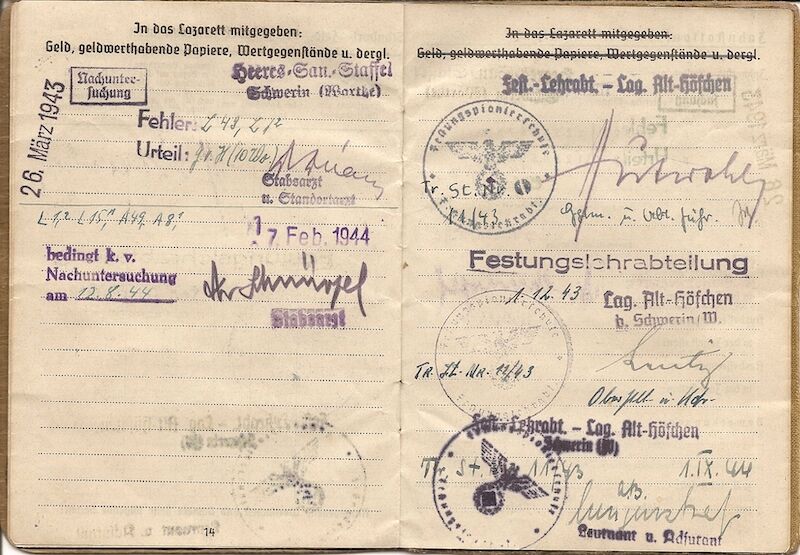 In das Lazarett mitgegeben:
Geld, geldwerthabende Papiere, Wertgegenstände u. dergl.
Nachunter-
suchung
Heeres-San.-Staffel
Schwerin (Warthe)
26. März 1943
Fehler: L 48, L 1²
Urteil:
Stabsarzt
u. Standortarzt
L 1,2 L 15, A 49, A 8,
17 Feb. 1944
bedingt k. v.
Nachuntersuchung
am 12.8.44
Stabsarzt
14
In das Lazarett mitgegeben:
Geld, geldwerthabende Papiere, Wertgegenstände u. dergl.
Fest.-Lehrabt. – Lag. Alt-Höfchen
Festungspionierschule
Tr. St. Nr.
11/43
Festungslehrabteilung
1.12.43
Lag. Alt-Höfchen
b. Schwerin/W.
Festungspionierschule
Tr. St. Nr. 12/43
Fest.-Lehrabt. – Lag. Alt-Höfchen
Schwerin (W)
Tr. St. Nr. 11/43
1.IX.44
Leutnant u. Adjutant